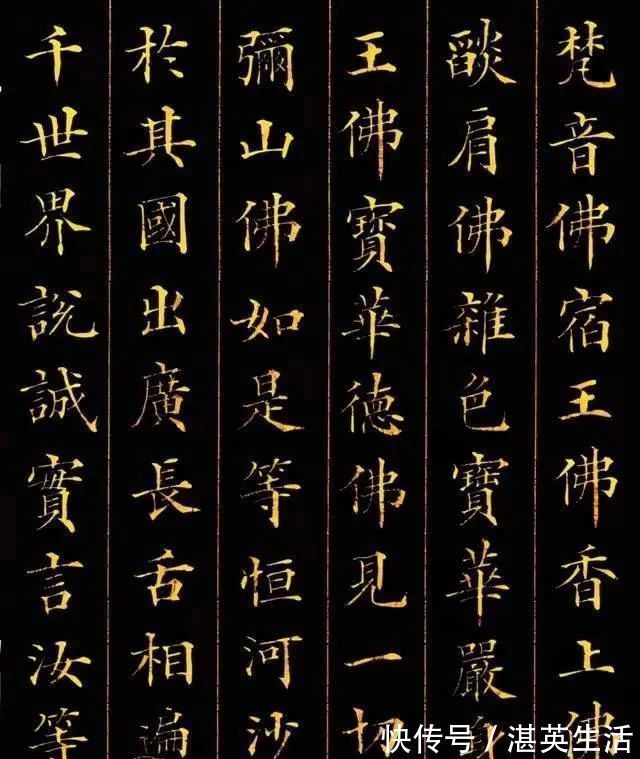 梵音佛宿王佛香上佛
燄肩佛雜色寶華嚴身
王佛寶華德佛見一切
彌山佛如是等恒河沙
於其國出廣長舌相遍
千世界説誠實言汝等
快传号／湛英生活